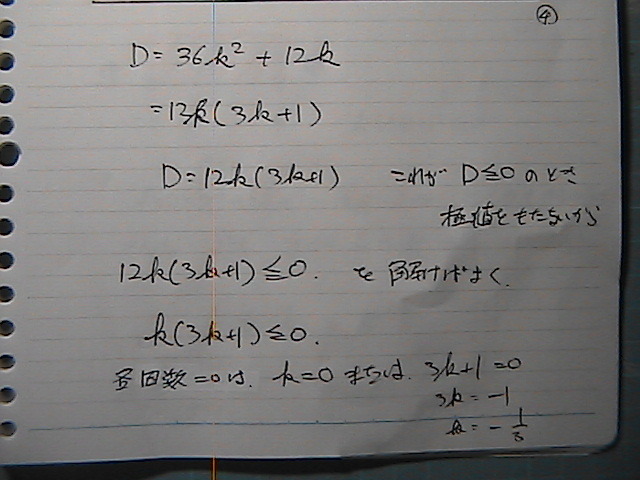 ④
D = 36k² + 12k
= 12k(3k+1)
D = 12k(3k+1) これが D≦0 のとき
極値をもたないから
12k(3k+1)≦0. を解けばよく.
k(3k+1)≦0.
=0は. k=0 または. 3k+1=0
3k = -1
k = -1/3